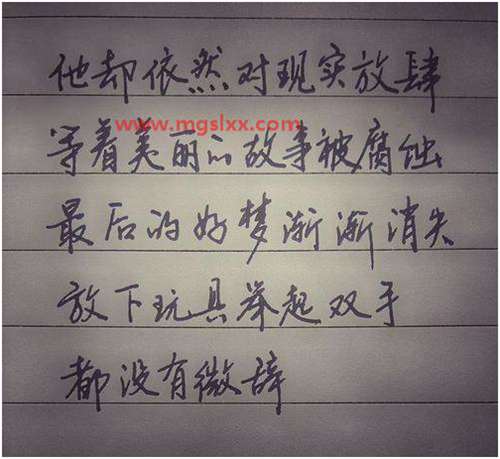 他却依然对现实放肆
www.mgslxx.com
等着美丽的故事被腐蚀
最后的好梦渐渐消失
放下玩具举起双手
都没有微辞